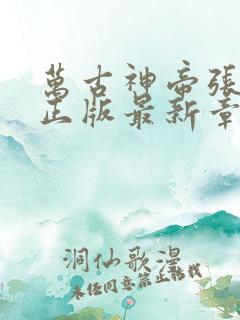 萬古神帝張
正版最新章
洞仙歌漫
未经同意禁止转载